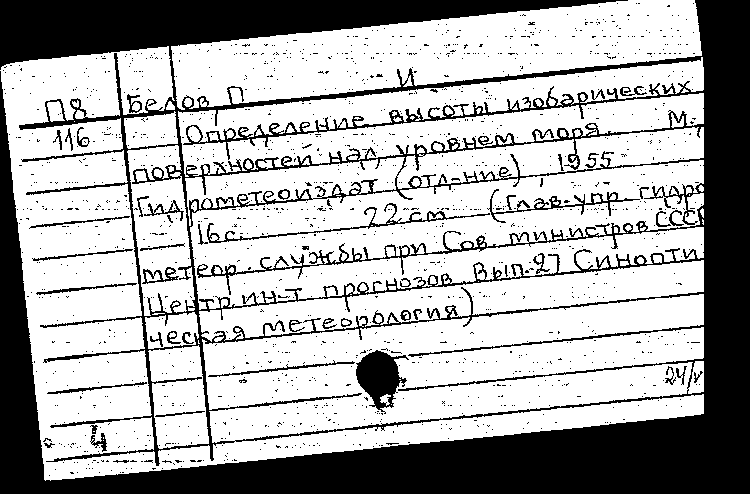 П8 Белов, П И
116 Определение высоты изобарических
поверхностей над уровнем моря. М.,
Гидрометеоиздат (отд-ние), 1955
16с. 22 см (Глав. упр. гидро
метеор. службы при Сов. министров СССР
Центр. ин-т прогнозов. Вып. 27 Синопти
ческая метеорология)
24/V
4